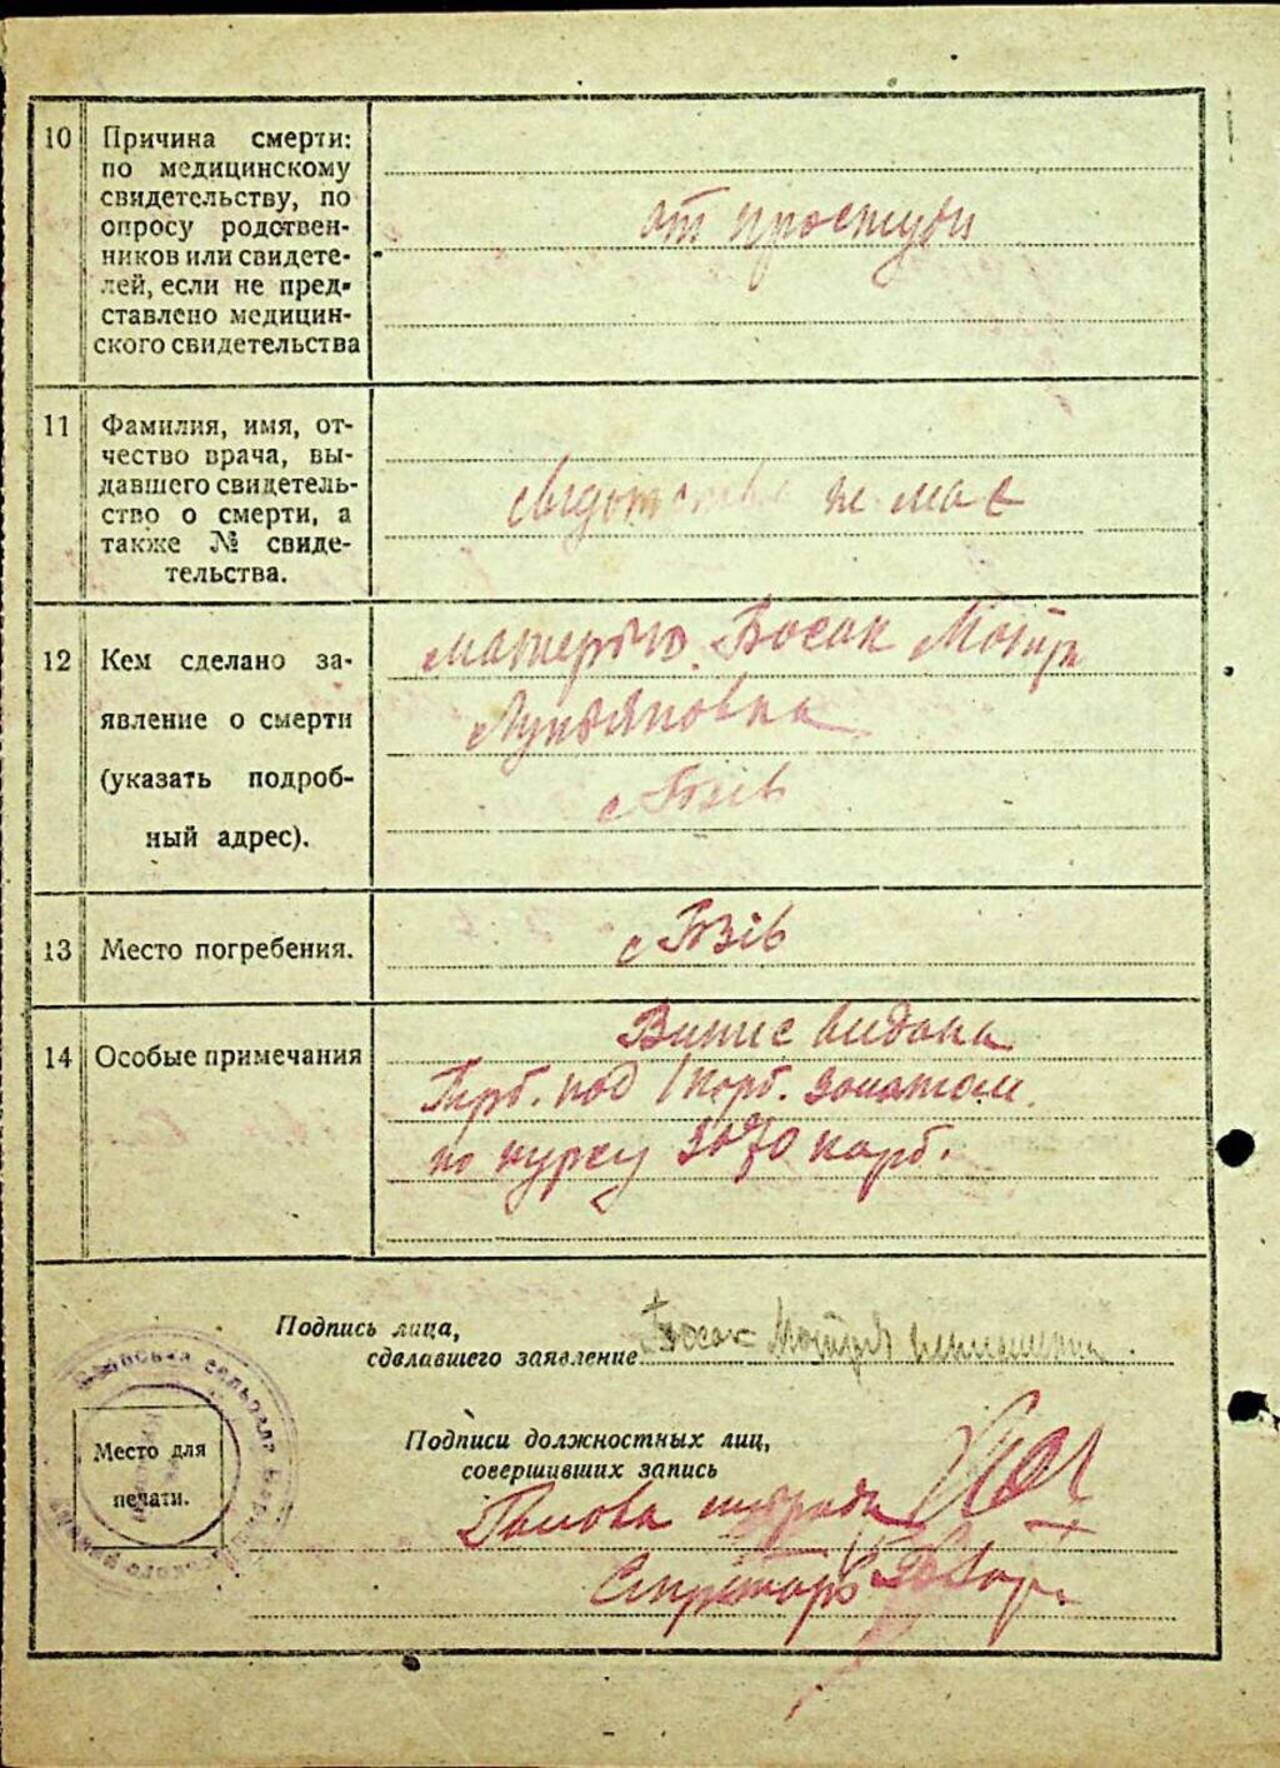 10
Причина смерти:
по медицинскому
свидетельству, по
опросу родствен-
ников или свидете-
лей, если не пред-
ставлено медицин-
ского свидетельства
от простуди
11
Фамилия, имя, от-
чество врача, вы-
давшего свидетель-
ство о смерти, а
также № свиде-
тельства.
не має
12
Кем сделано за-
явление о смерти
(указать подроб-
ный адрес).
матерью Босак Мотря
Лукьяновна
с Гбзів
13
Место погребения.
с Гбзів
14
Особые примечания
видана
под карб.
по курсу карб.
Подпись лица,
сделавшего заявление
Босак Мотря
Место для
печати.
Подписи должностных лиц,
совершивших запись
Голова
Секретарь